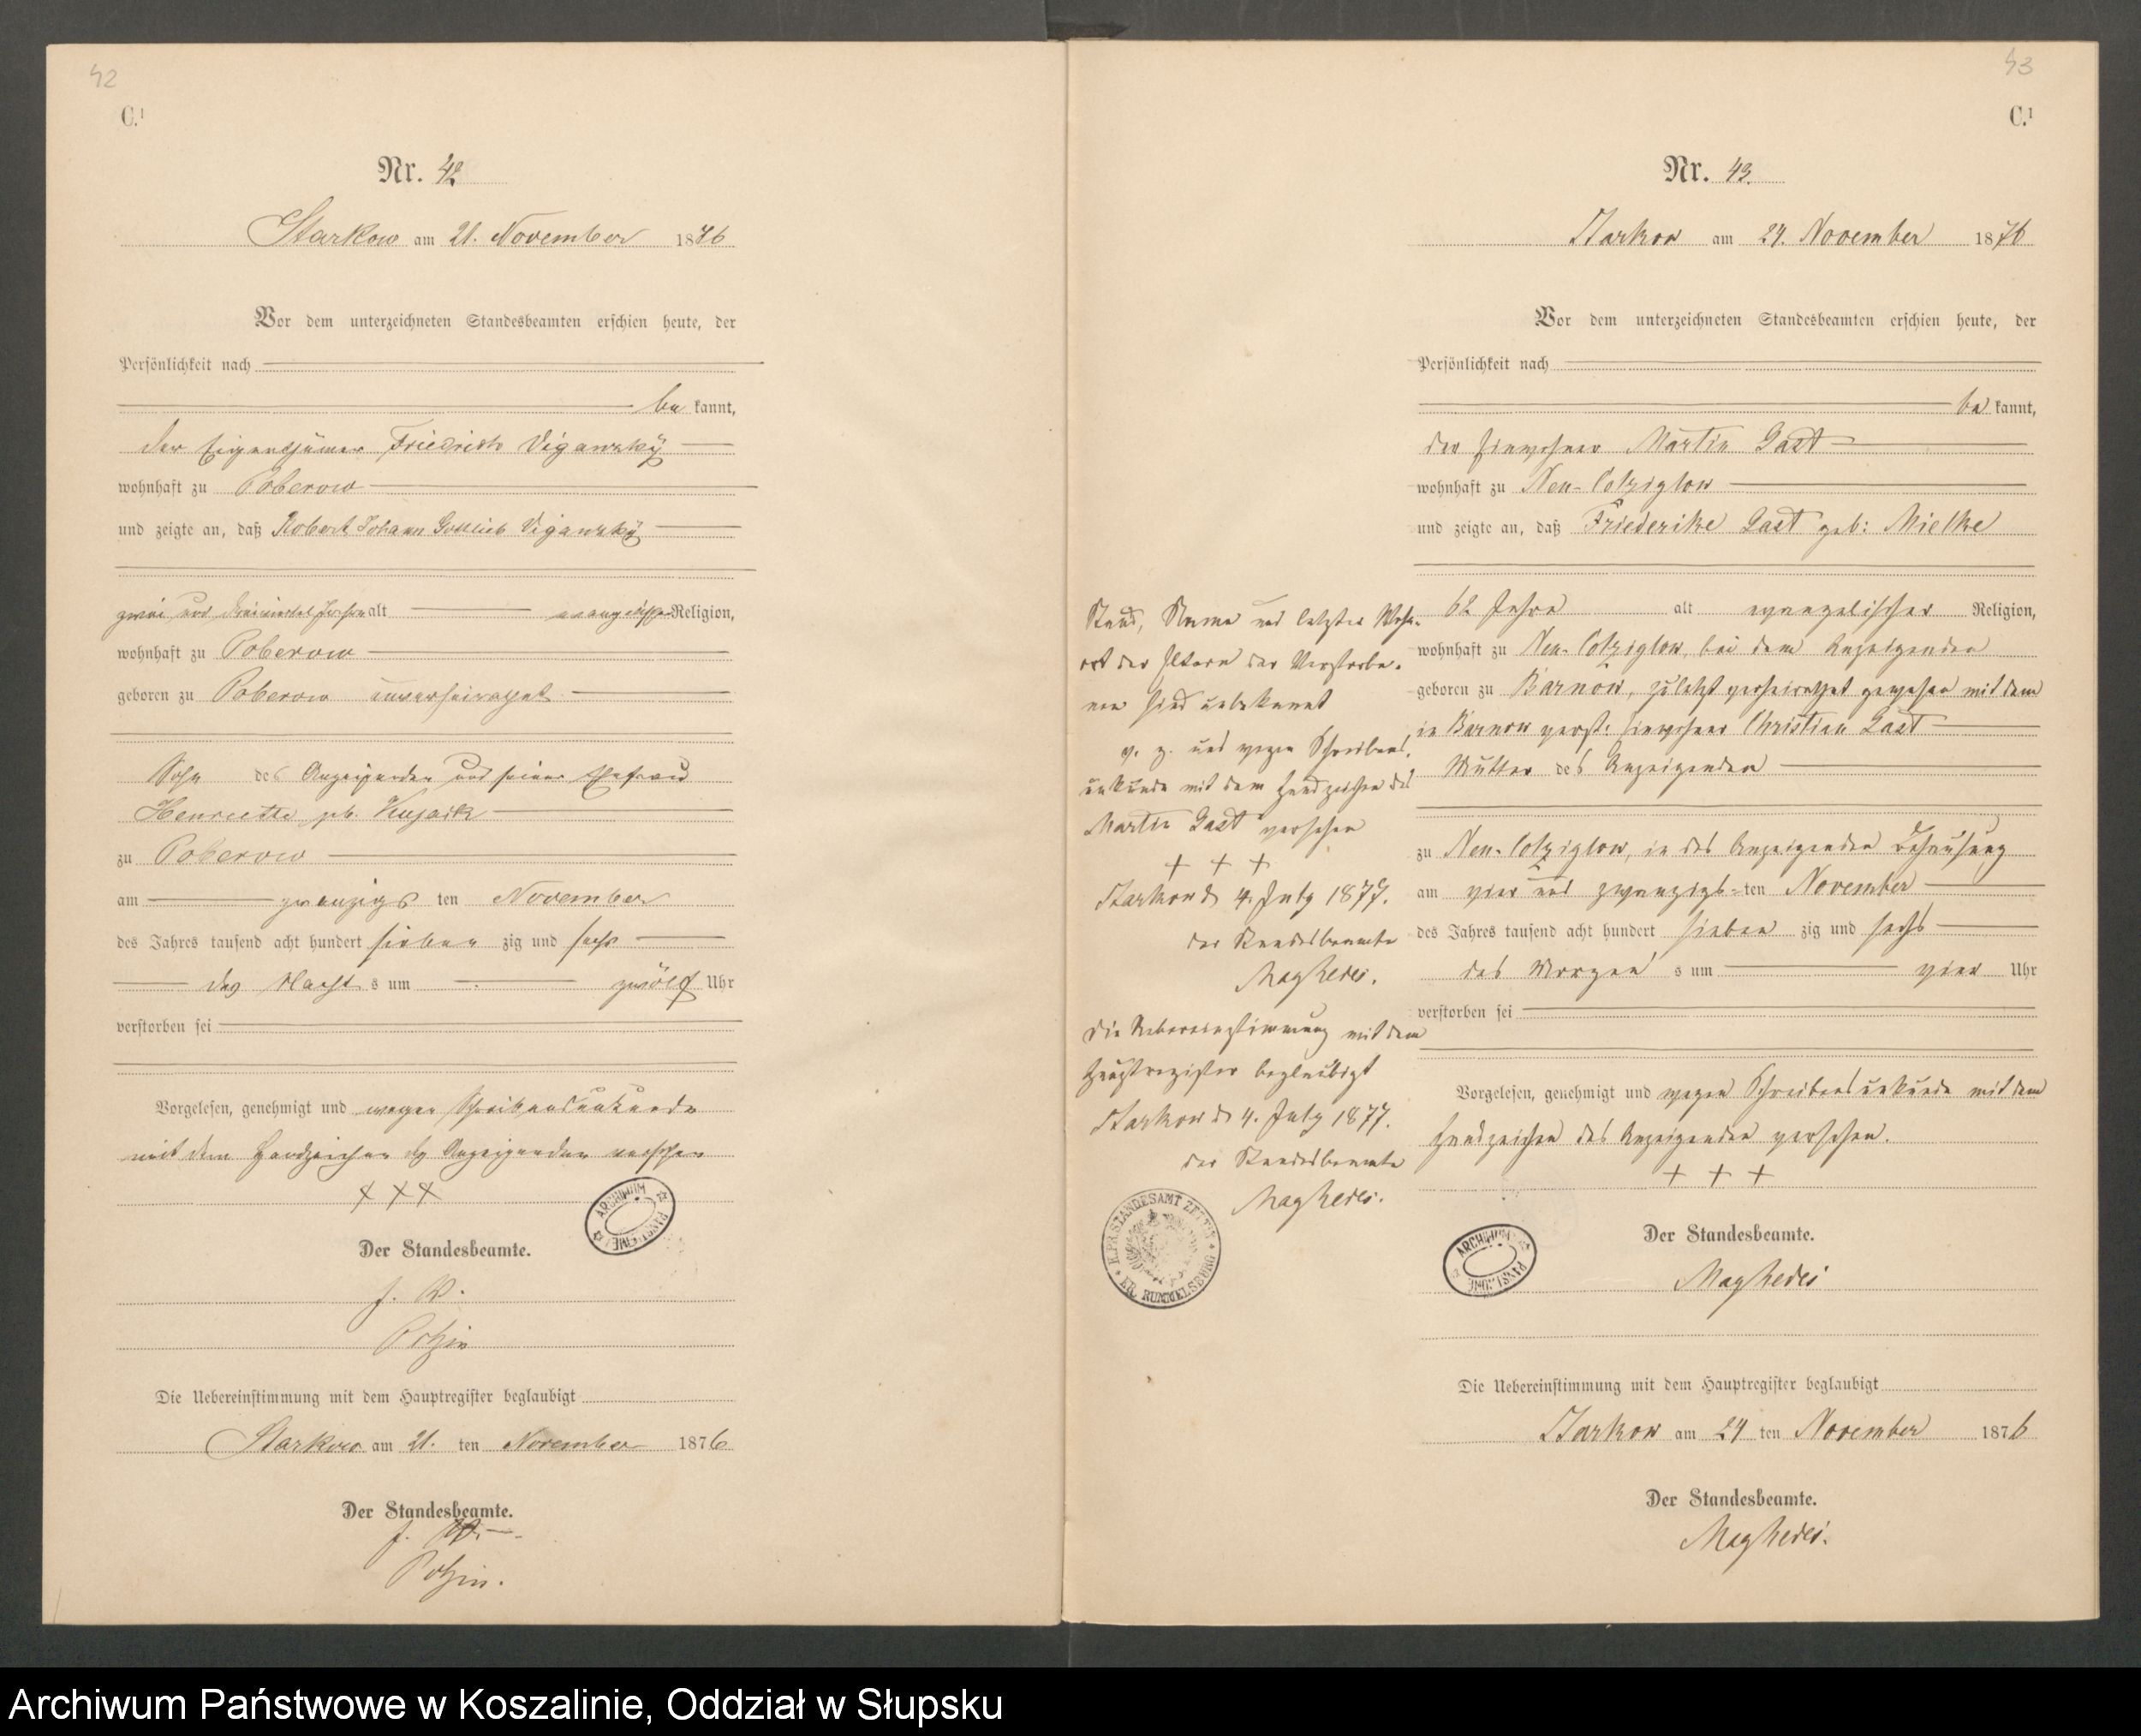 42
C.¹
Nr. 42
Starkow am 21. November 1876
Vor dem unterzeichneten Standesbeamten erschien heute, der
Persönlichkeit nach
be kannt,
der Eigenthümer Friedrich Viganzky
wohnhaft zu Poberow
und zeigte an, daß Robert Johann Gottlieb Viganzky
zwei und Jahre alt evangelischer Religion,
wohnhaft zu Poberow
geboren zu Poberow unverheirathet
Sohn des Anzeigenden und seiner Ehefrau
Henriette geb.
zu Poberow
am zwanzigs ten November
des Jahres tausend acht hundert sieben zig und sechs
des Nacht s um zwölf Uhr
verstorben sei
Vorgelesen, genehmigt und wegen Schreibensunkunde
mit dem Handzeichen des Anzeigenden versehen
+++
Der Standesbeamte.
Die Uebereinstimmung mit dem Hauptregister beglaubigt
Starkow am 21. ten November 1876
Der Standesbeamte.
43
C.¹
Nr. 43.
Starkow am 24. November 1876
Vor dem unterzeichneten Standesbeamten erschien heute, der
Persönlichkeit nach
be kannt,
der Einwohner Martin Gast
wohnhaft zu Neu-Colziglow
und zeigte an, daß Friederike Gast geb: Mielke
62 Jahre alt evangelischer Religion,
wohnhaft zu Neu-Colziglow, bei dem Anzeigenden
geboren zu Barnow, zuletzt verheirathet gewesen mit dem
in Barnow verst: Einwohner Christian Gast
Mutter des Anzeigenden
zu Neu-Colziglow, in des Anzeigenden Behausung
am vier und zwanzigs-ten November
des Jahres tausend acht hundert sieben zig und sechs
des Morgen s um vier Uhr
verstorben sei
Vorgelesen, genehmigt und wegen Schreibensunkunde mit dem
Handzeichen des Anzeigenden versehen.
+ + +
Der Standesbeamte.
Die Uebereinstimmung mit dem Hauptregister beglaubigt
Starkow am 24 ten November 1876
Der Standesbeamte.
Stand, Name und letzter Wohn-
ort der Eltern der Verstorbe-
nen sind unbekannt
v. g. und wegen Schreibens-
unkunde mit dem Handzeichen des
Martin Gast versehen
+ + +
Starkow d 4. July 1877.
der Standesbeamte
Die Uebereinstimmung mit dem
Hauptregister beglaubigt
Starkow d 4. July 1877.
der Standesbeamte
K. PR. STANDESAMT * KR. RUMMELSBURG *
Archiwum Państwowe w Koszalinie, Oddział w Słupsku